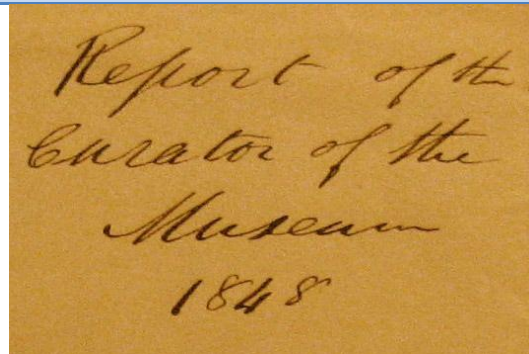 Report of the
Curator of the
Museum
1848